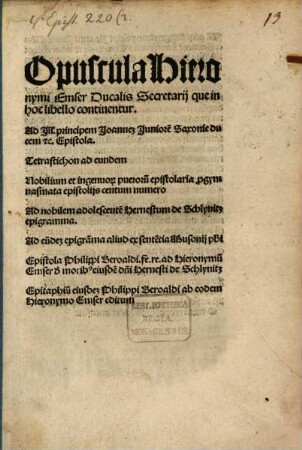 4° Epist. 220 (2.
13
Opuscula Hiero
nymi Emser Ducalis Secretarij que in
hoc libello continentur.
Ad Ill. principem Joannez Juniorē Saxonie du
cem ⁊c. Epistola.
Tetrastichon ad eundem
Nobilium et ingenuoꝝ pueroꝝ epistolaria ꝓgym
nasmata epistolijs centum numero
Ad nobilem adolescentē Hernestum de Schlynitz
epigramma.
Ad eūdez epigrāma aliud ex sentētia Ausonij
Epistola Philippi Beroaldi. fe. re. ad Hieronymū
Emser d' moribꝰ eiusdē dn̄i Hernesti de Schlynitz
Epitaphiū eiusdez Philippi Beroaldi ab eodem
Hieronymo Emser editum
BIBLIOTHECA
REGIA
MONACENSIS.